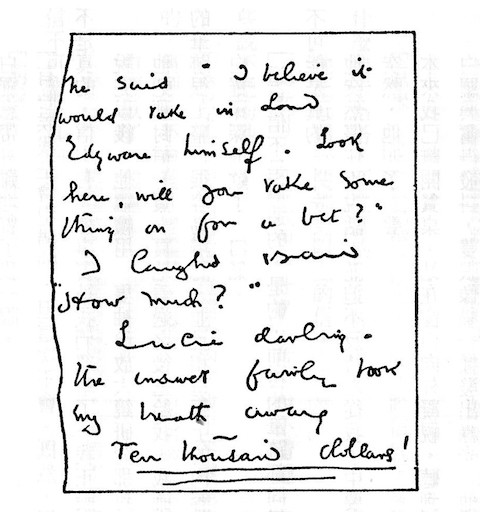 he said "I believe it
would take in Lord
Edgware himself. Look
here, will you take some
thing on for a bet?"
I laughed & said
"How much?"
Lucie darling.
the answer fairly took
my breath away
Ten thousand dollars!